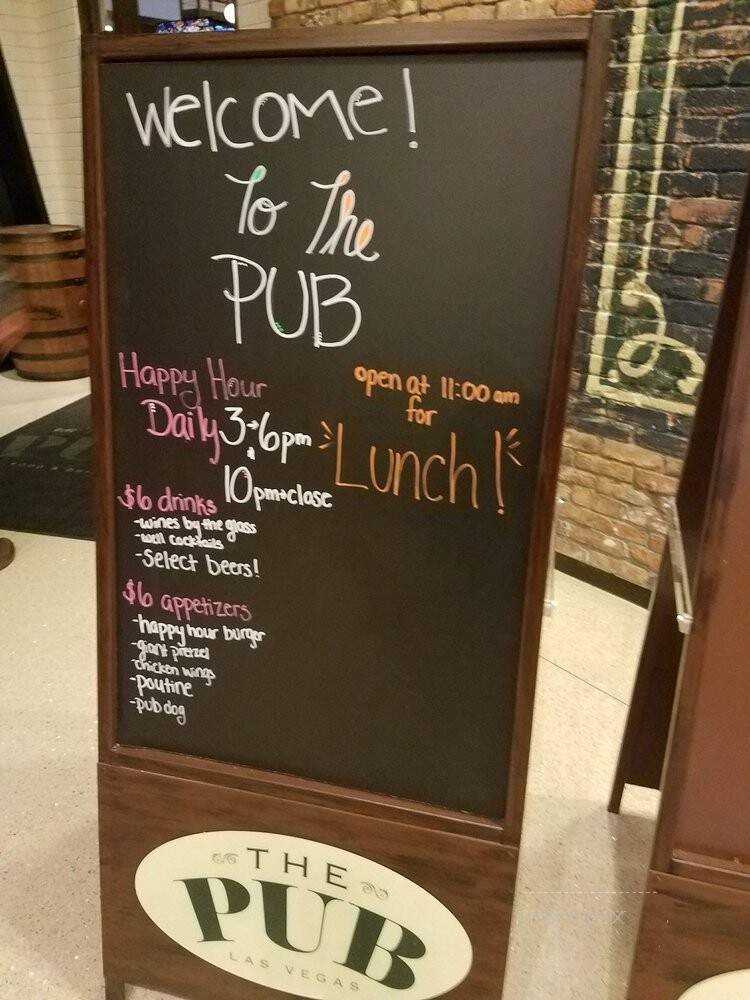 Welcome!
To The
PUB
Happy Hour
Daily 3→6pm
&
10pm→close
$6 drinks
-wines by the glass
-well cocktails
-Select beers!
$6 appetizers
-happy hour burger
-giant pretzel
-chicken wings
-poutine
-pub dog
open at 11:00 am
for
Lunch!
THE
PUB
LAS VEGAS